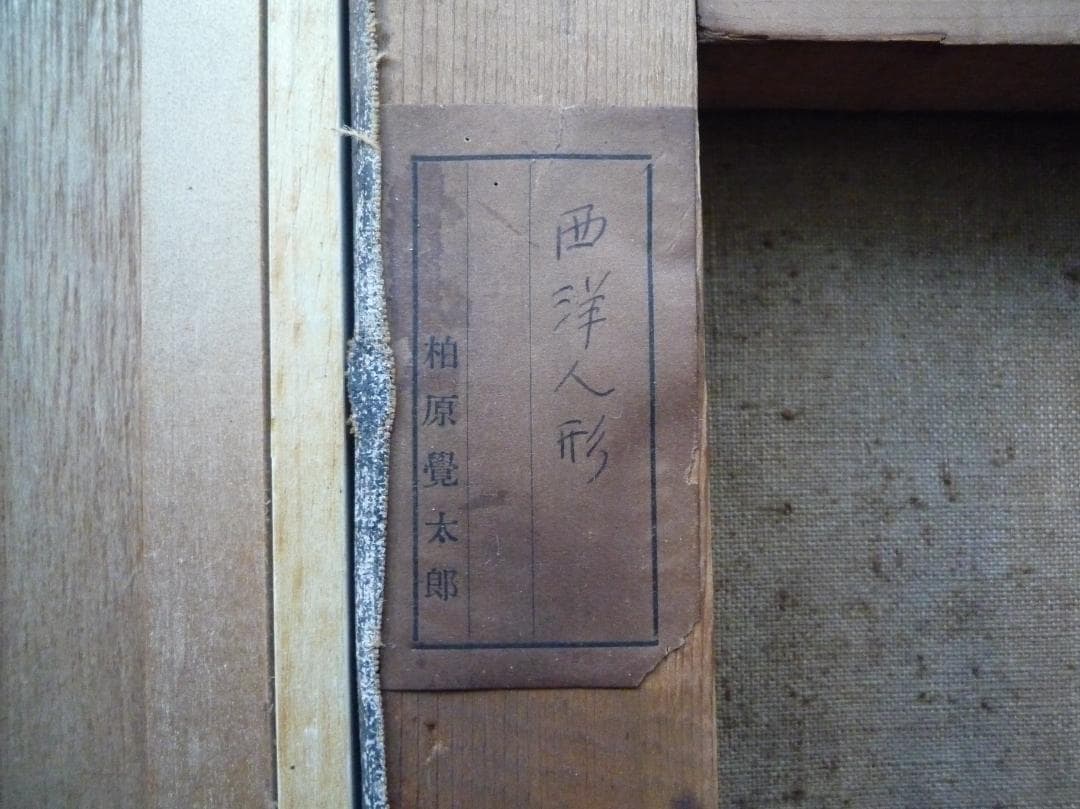 西洋人形
柏原覺太郎